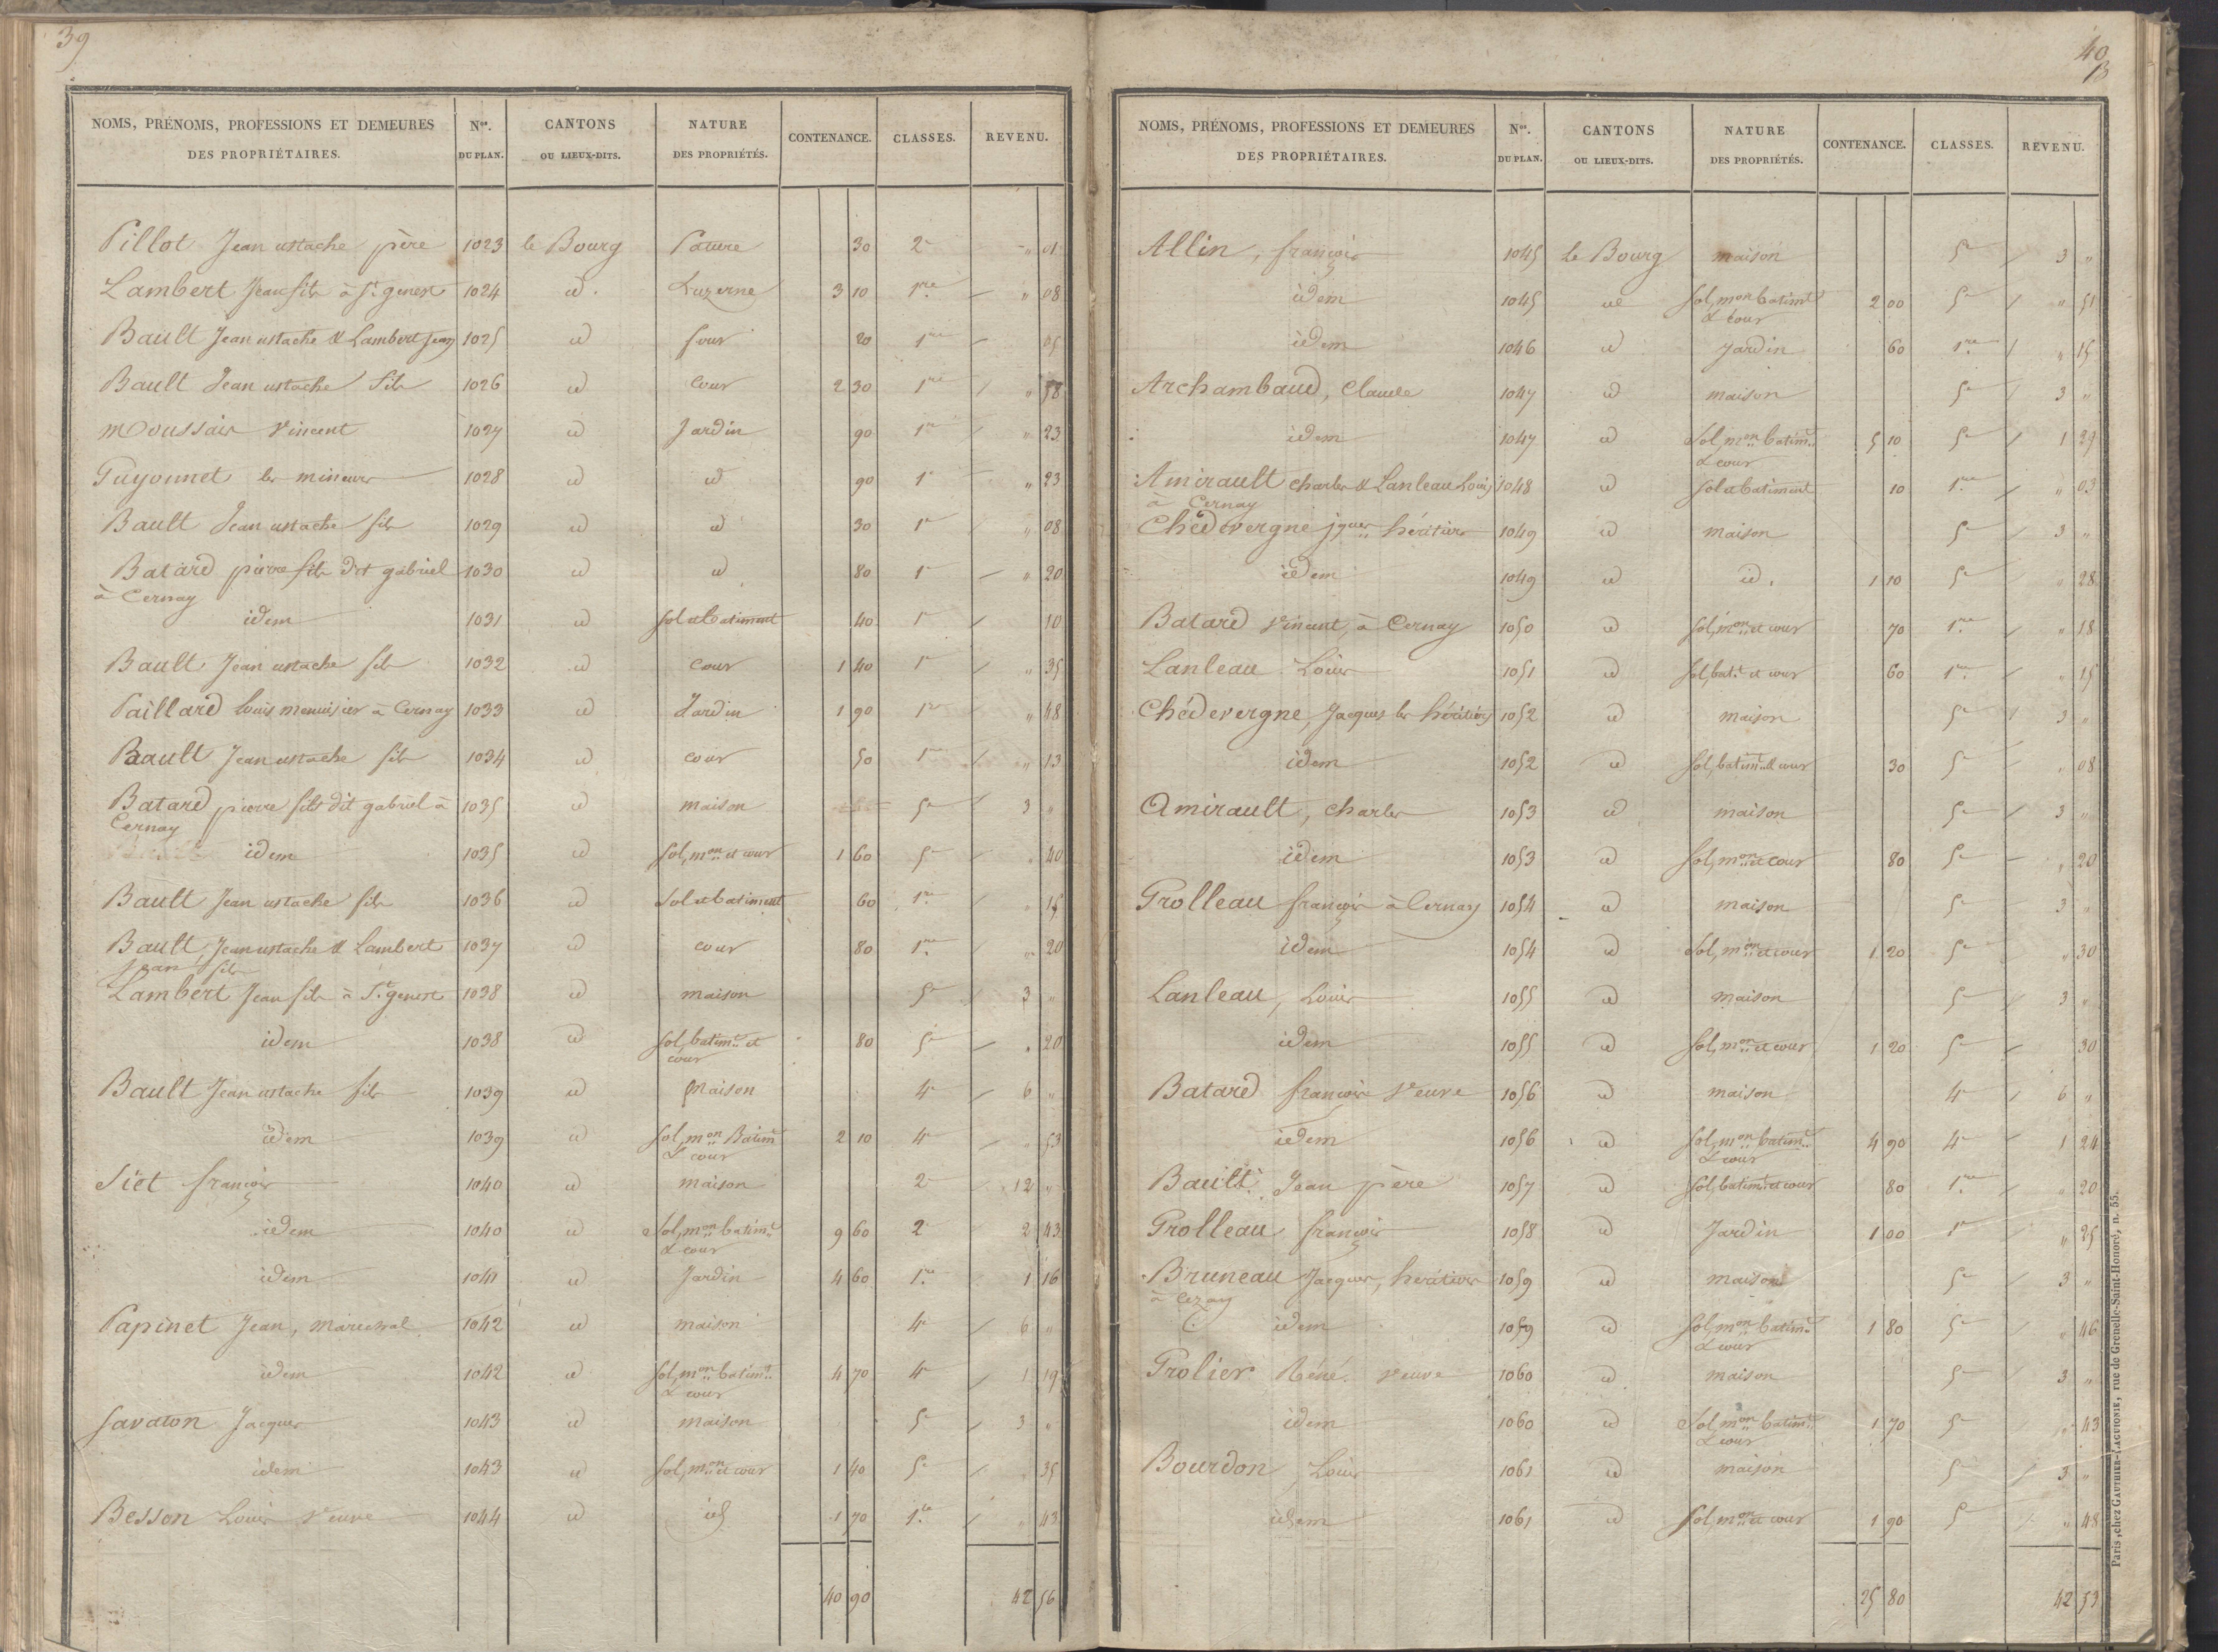 39
NOMS, PRÉNOMS, PROFESSIONS ET DEMEURES DES PROPRIÉTAIRES. Nos. DU PLAN. CANTONS OU LIEUX-DITS. NATURE DES PROPRIÉTÉS. CONTENANCE. CLASSES. REVENU.
Pillot Jean ustache père 1023 le Bourg Pature 30 2e " 01
Lambert Jean fils à St. genest 1024 id. Luzerne 3 10 1re " 08
Bault Jean ustache & Lambert Jean 1025 id four 20 1re 05
Bault Jean ustache fils 1026 id Cour 2 30 1re " 58
Moussais Vincent 1027 id Jardin 90 1re " 23
Puyonnet les mineurs 1028 id id 90 1e " 23
Bault Jean ustache fils 1029 id id 30 1e " 08
Batard pierre fils dit gabriel 1030 id id 80 1e " 20
à Cernay
idem 1031 id sol et batiment 40 1e 10
Bault Jean ustache fils 1032 id cour 1 40 1e " 35
Paillard Louis menuisier à Cernay 1033 id Jardin 1 90 1re " 48
Bault Jean ustache fils 1034 id cour 50 1re " 13
Batard pierre fils dit gabriel à 1035 id maison 5e 3 "
Cernay
idem 1035 id sol, mon et cour 1 60 5e " 40
Bault Jean ustache fils 1036 id Sol et batiment 60 1re " 15
Bault, Jean ustache & Lambert 1037 id cour 80 1re " 20
Jean fils
Lambert Jean fils à St. genest 1038 id maison 5e 3 "
idem 1038 id sol, batimt et 80 5e " 20
cour
Bault Jean ustache fils 1039 id Maison 4e 6 "
idem 1039 id sol, mon Batimt 2 10 4e " 53
& cour
Siet françois 1040 id maison 2e 12 "
idem 1040 id Sol, mon batimt 9 60 2e 2 43
& cour
idem 1041 id Jardin 4 60 1re 1 16
Papinet Jean, marechal 1042 id maison 4e 6 "
idem 1042 id sol, mon batimt 4 70 4e 1 19
& cour
Savaton Jacques 1043 id maison 5e 3 "
idem 1043 id sol, mon et cour 1 40 5e " 35
Besson Louis Veuve 1044 id id 1 70 1re " 43
40 90 42 56
40
NOMS, PRÉNOMS, PROFESSIONS ET DEMEURES DES PROPRIÉTAIRES. Nos. DU PLAN. CANTONS OU LIEUX-DITS. NATURE DES PROPRIÉTÉS. CONTENANCE. CLASSES. REVENU.
Allin, françois 1045 le Bourg maison 5e 3 "
idem 1045 id Sol, mon batimt 2 00 5e " 51
& cour
idem 1046 id Jardin 60 1re " 15
Archambaud, Claude 1047 id maison 5e 3 "
idem 1047 id Sol, mon batimt 5 10 5e 1 29
& cour
Amirault charles & Lanleau Louis 1048 id sol et batiment 10 1re " 03
à Cernay
Chédevergne jques héritiers 1049 id maison 5e 3 "
idem 1049 id id. 1 10 5e " 28
Batard Vincent, à Cernay 1050 id sol, mon et cour 70 1re " 18
Lanleau Louis 1051 id sol, batt et cour 60 1re " 15
Chédevergne, Jacques les héritiers 1052 id maison 5e 3 "
idem 1052 id sol, batimt & cour 30 5e " 08
Amirault, charles 1053 id maison 5e 3 "
idem 1053 id Sol, mon et cour 80 5e " 20
Grolleau françois à Cernay 1054 id maison 5e 3 "
idem 1054 id Sol, mon et cour 1 20 5e " 30
Lanleau, Louis 1055 id maison 5e 3 "
idem 1055 id sol, mon et cour 1 20 5e 30
Batard françois Veuve 1056 id maison 4e 6 "
idem 1056 id sol, mon batimt 4 90 4e 1 24
& cour
Bault Jean père 1057 id sol, batimt et cour 80 1re " 20
Grolleau françois 1058 id Jardin 1 00 1e " 25
Bruneau Jacques, heritiers 1059 id maison 5e 3 "
idem 1059 id sol, mon batimt 1 80 5e " 46
& cour
Grolier Réné. Veuve 1060 id maison 5e 3 "
idem 1060 id Sol, mon batimt 1 70 5e " 43
& cour
Bourdon Louis 1061 id maison 5e 3 "
idem 1061 id sol, mon et cour 1 90 5e " 48
25 80 42 53
Paris, chez GAUTHIER-LAGUIONIE, rue de Grenelle-Saint-Honoré, n. 55.